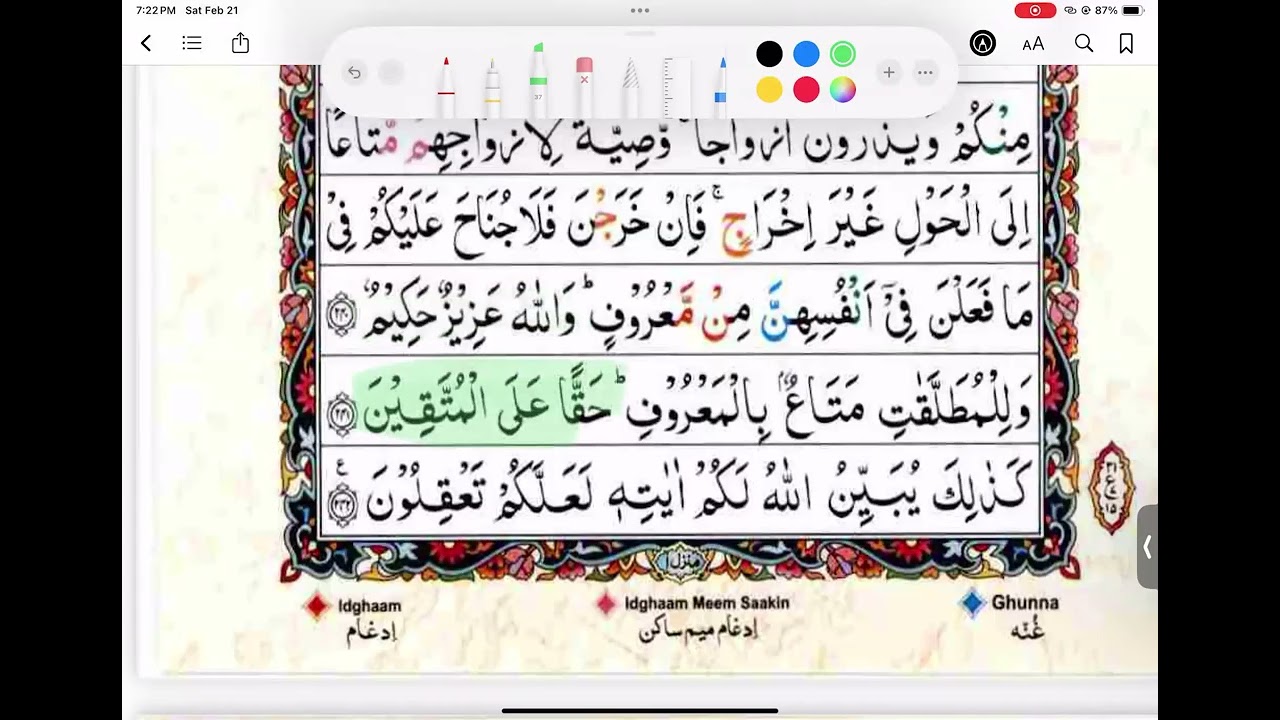 7:22 PM Sat Feb 21
87%
AA
37
مِنْكُمْ وَيَذَرُونَ اَزْوَاجًا ۖ وَّصِيَّةً لِاَزْوَاجِهِمْ مَّتَاعًا
اِلَى الْحَوْلِ غَيْرَ اِخْرَاجٍ ۚ فَاِنْ خَرَجْنَ فَلَا جُنَاحَ عَلَيْكُمْ فِىْ
مَا فَعَلْنَ فِىْٓ اَنْفُسِهِنَّ مِنْ مَّعْرُوْفٍ ؕ وَاللّٰهُ عَزِيْزٌ حَكِيْمٌ ﴿۲۴۰﴾
وَلِلْمُطَلَّقٰتِ مَتَاعٌ ۢ بِالْمَعْرُوْفِ ؕ حَقًّا عَلَى الْمُتَّقِيْنَ ﴿۲۴۱﴾
كَذٰلِكَ يُبَيِّنُ اللّٰهُ لَكُمْ اٰيٰتِهٖ لَعَلَّكُمْ تَعْقِلُوْنَ ﴿۲۴۲﴾ ع
۳۱
ع
۱۵
منزل ۱
Idghaam Idghaam Meem Saakin Ghunna
إدغام إدغام ميم ساكن غُنّه